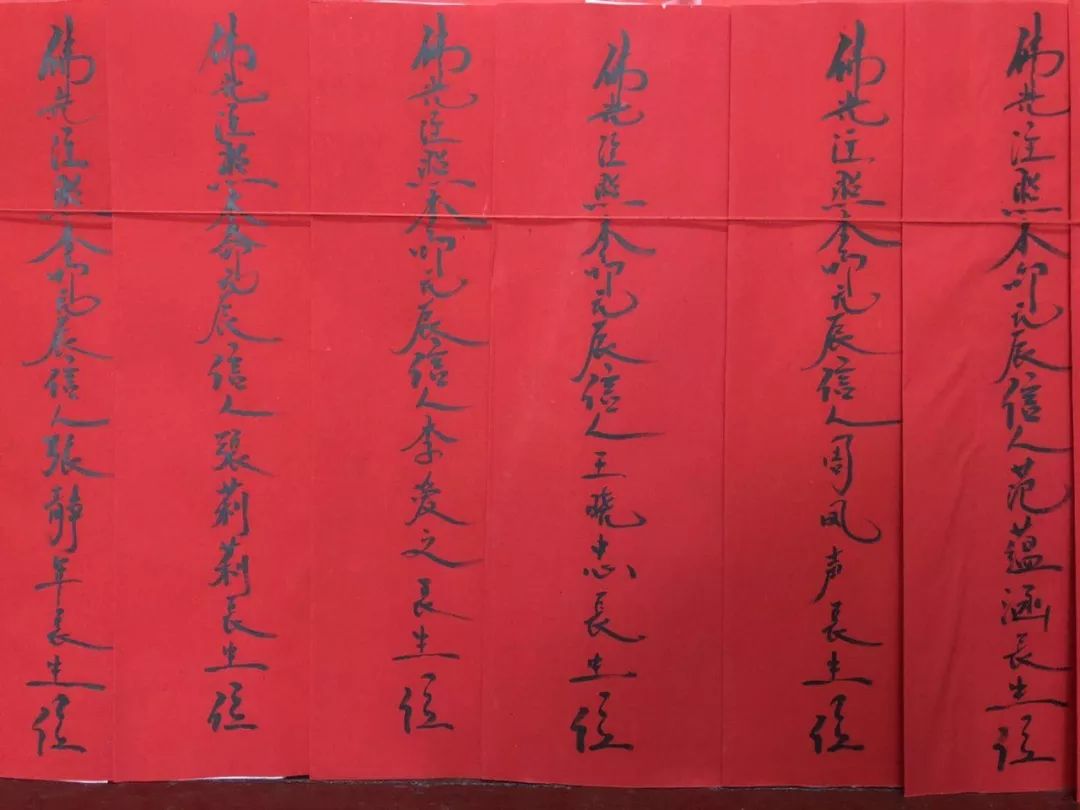 佛光注照本命元辰信人范蕴涵长生位
佛光注照本命元辰信人周凤声长生位
佛光注照本命元辰信人王晓忠长生位
佛光注照本命元辰信人李爱之长生位
佛光注照本命元辰信人张莉莉长生位
佛光注照本命元辰信人张静年长生位